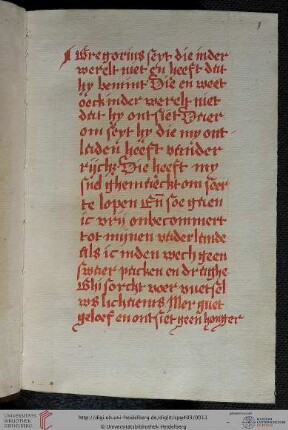 1
Gregorius seyt die inder
werelt niet en heeft dat
hy bemint Die en weet
oeck inder werelt niet
dat hy ontsiet Daer
om seyt hy die my ont
laden heeft vander
rijcht Die heeft my
snel ghemaeckt om seer
te lopen Eñ soe gaen
ic vrij onbecommert
tot mijnen vaderlande
als ic inden wech geen
swaer packen en draghe
Ghi sorcht voer voetsel
ws lichaems Mer guet
geloef en ontsiet geen honger
UNIVERSITÄTS-
BIBLIOTHEK
HEIDELBERG
© Universitätsbibliothek Heidelberg